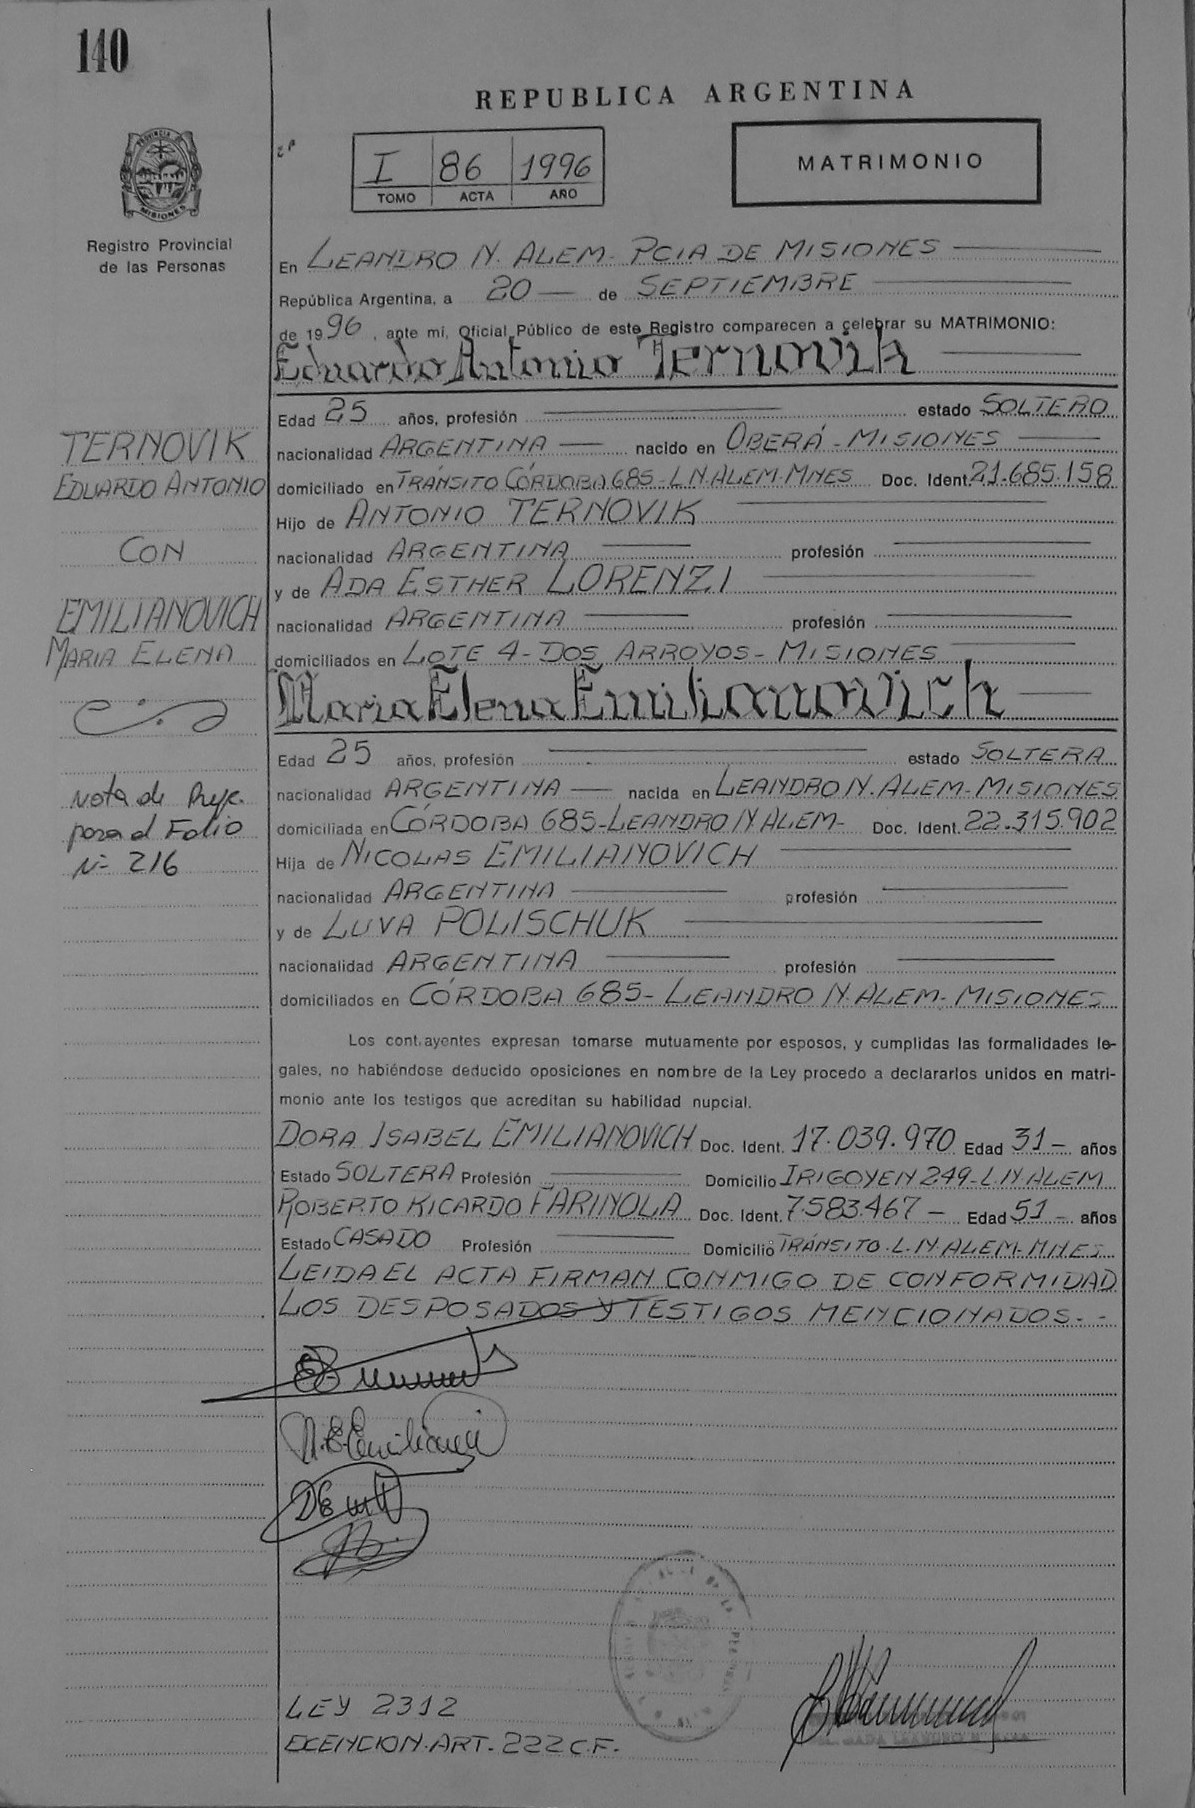 140
REPUBLICA ARGENTINA
I 86 1996
TOMO ACTA AÑO
MATRIMONIO
PROVINCIA DE
MISIONES
Registro Provincial
de las Personas
En LEANDRO N. ALEM - PCIA DE MISIONES
República Argentina, a 20 — de SEPTIEMBRE
de 1996, ante mi, Oficial Público de este Registro comparecen a celebrar su MATRIMONIO:
Eduardo Antonio Ternovik
Edad 25 años, profesión estado SOLTERO
nacionalidad ARGENTINA — nacido en OBERÁ - MISIONES
domiciliado en TRÁNSITO CÓRDOBA 685 - L N ALEM - MNES Doc. Ident. 21.685.158
Hijo de ANTONIO TERNOVIK
nacionalidad ARGENTINA profesión
y de ADA ESTHER LORENZI
nacionalidad ARGENTINA profesión
domiciliados en LOTE 4 - DOS ARROYOS - MISIONES
TERNOVIK
EDUARDO ANTONIO
CON
EMILIANOVICH
MARIA ELENA
Maria Elena Emilianovich
Edad 25 años, profesión estado SOLTERA
nacionalidad ARGENTINA — nacida en LEANDRO N. ALEM - MISIONES
domiciliada en CÓRDOBA 685 - LEANDRO N ALEM - Doc. Ident. 22.315.902
Hija de NICOLAS EMILIANOVICH
nacionalidad ARGENTINA profesión
y de LUVA POLISCHUK
nacionalidad ARGENTINA profesión
domiciliados en CÓRDOBA 685 - LEANDRO N. ALEM - MISIONES
Nota de
pasa al Folio
Nº 216
Los contrayentes expresan tomarse mutuamente por esposos, y cumplidas las formalidades le-
gales, no habiéndose deducido oposiciones en nombre de la Ley procedo a declararlos unidos en matri-
monio ante los testigos que acreditan su habilidad nupcial.
DORA ISABEL EMILIANOVICH Doc. Ident. 17.039.970 Edad 31 - años
Estado SOLTERA Profesión Domicilio IRIGOYEN 249 - L. N ALEM
ROBERTO RICARDO FARINOLA Doc. Ident. 7.583.467 - Edad 51 - años
Estado CASADO Profesión Domicilio TRÁNSITO - L. N ALEM - MNES
LEIDA EL ACTA FIRMAN CONMIGO DE CONFORMIDAD
LOS DESPOSADOS Y TESTIGOS MENCIONADOS. -
LEY 2312
EXENCION. ART. 222 C.F.